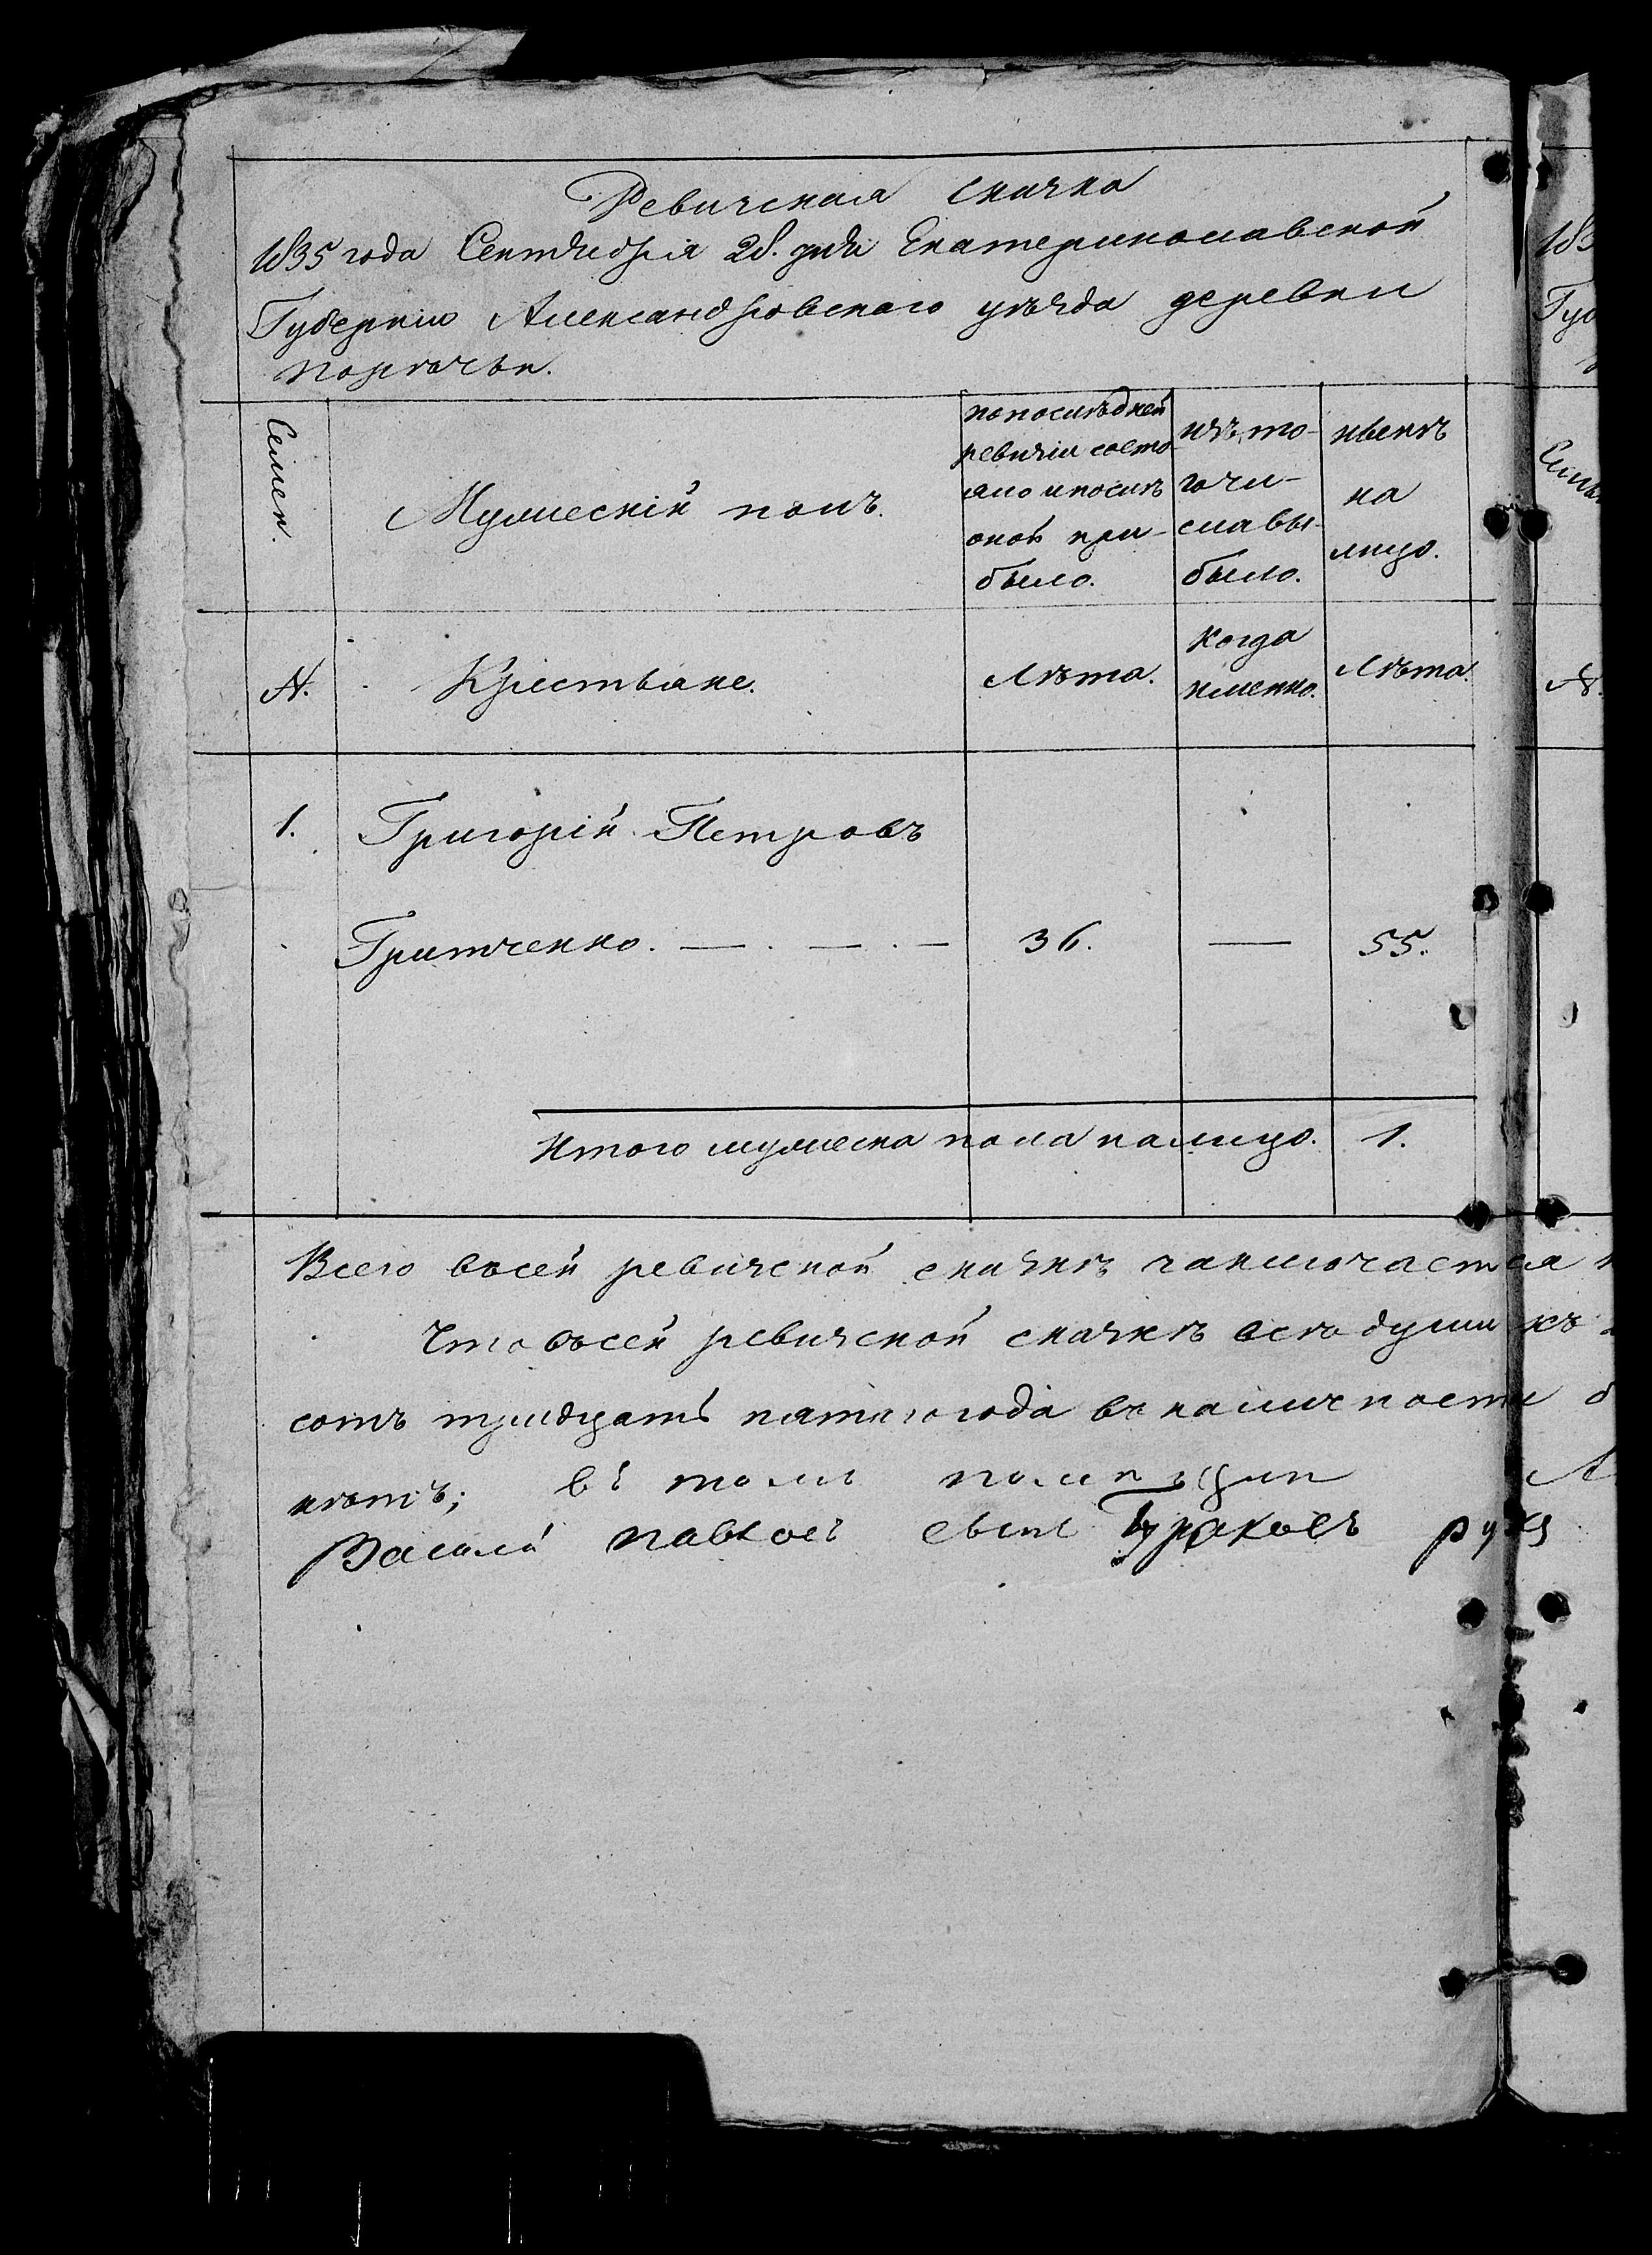 Ревизская сказка
1835 года Сентября 28. дня Екатеринославской
Губерніи Александровскаго уѣзда деревни
Порѣчья.
Семеи.
Мужескій полъ.
по послѣдней
ревизіи состо-
яло и послѣ
оной при-
было.
изъ то-
го чи-
сла вы-
было.
нынѣ
на
лицо.
№.
Крестьяне.
Лѣта.
Когда
именно.
Лѣта.
1.
Григорій Петровъ
Гритченко. — . — . — 36. — 55.
Итого мужеска пола налицо. 1.
Всего въ сей ревизской сказкѣ заключается
Что въ сей ревизской сказкѣ всѣ души къ
сотъ тридцать пятаго года въ наличности
нѣтъ; въ томъ
Василій Павловъ сынъ рук
183
Губ
№.